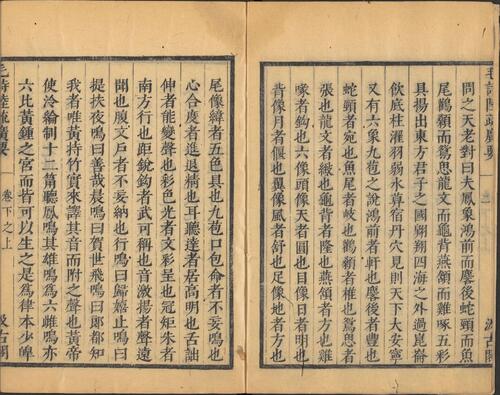 毛詩陸疏廣要
汲古閣
問之天老對曰夫鳳象鴻前而麐後蛇頸而魚
尾鸛顙而鴛思龍文而龜背燕頷而雞啄五彩
具揚出東方君子之國翺翔四海之外過崑崙
飲底柱濯羽弱水莫宿丹穴見則天下大安寧
又有六象九苞之說鴻前者軒也麐後者豐也
蛇頸者宛也魚尾者岐也鸛顙者椎也鴛思者
張也龍文者緻也龜背者隆也燕頷者方也雞
喙者鈎也六像頭像天者圓也目像日者明也
背像月者偃也翼像風者舒也足像地者方也
尾像緯者五色具也九苞口包命者不妄鳴也
心合度者進退精也耳聽達者居高明也舌詘
伸者能變聲也彩色光者文彩呈也冠矩朱者
南方行也距銳鈎者武可稱也音激揚者聲遠
聞也腹文戶者不妄納也行鳴曰歸嬉止鳴曰
提扶夜鳴曰善哉晨鳴曰賀世飛鳴曰郎都知
我者唯黃持竹實來譯其音而附之聲也黃帝
使泠綸制十二筩聽鳳鳴其雄鳴爲六雌鳴亦
六比黃鍾之宮而皆可以生之是爲律本少皥
毛詩陸疏廣要
卷下之上
汲古閣